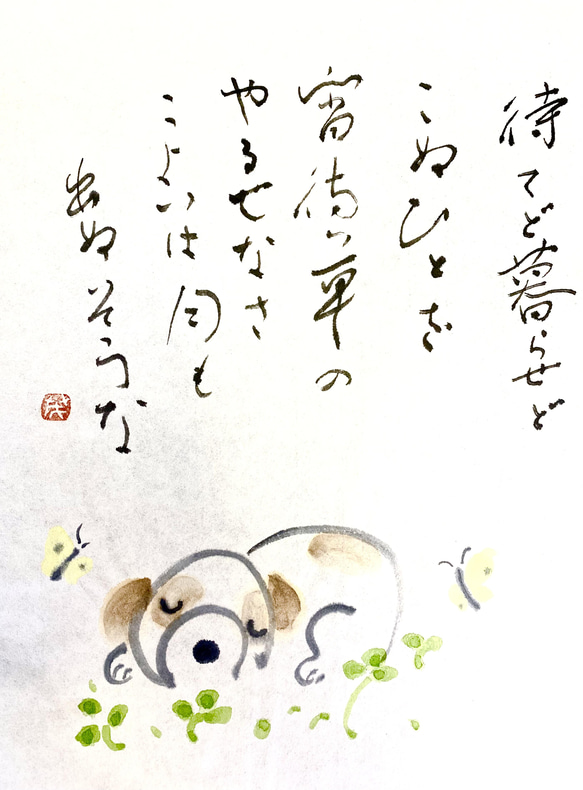 待てど暮らせど
こぬひとを
宵待草の
やるせなさ
こよいは月も
出ぬそうな